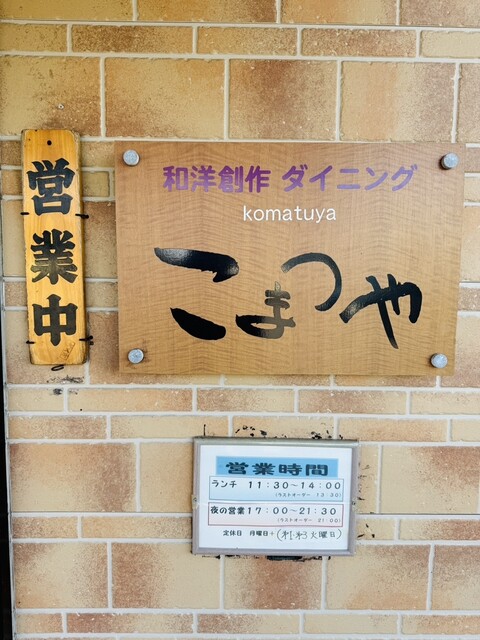 営業中
和洋創作 ダイニング
komatuya
こまつや
営業時間
ランチ 11:30～14:00
(ラストオーダー 13:30)
夜の営業 17:00～21:30
(ラストオーダー 21:00)
定休日 月曜日+(オ1・オ3火曜日)